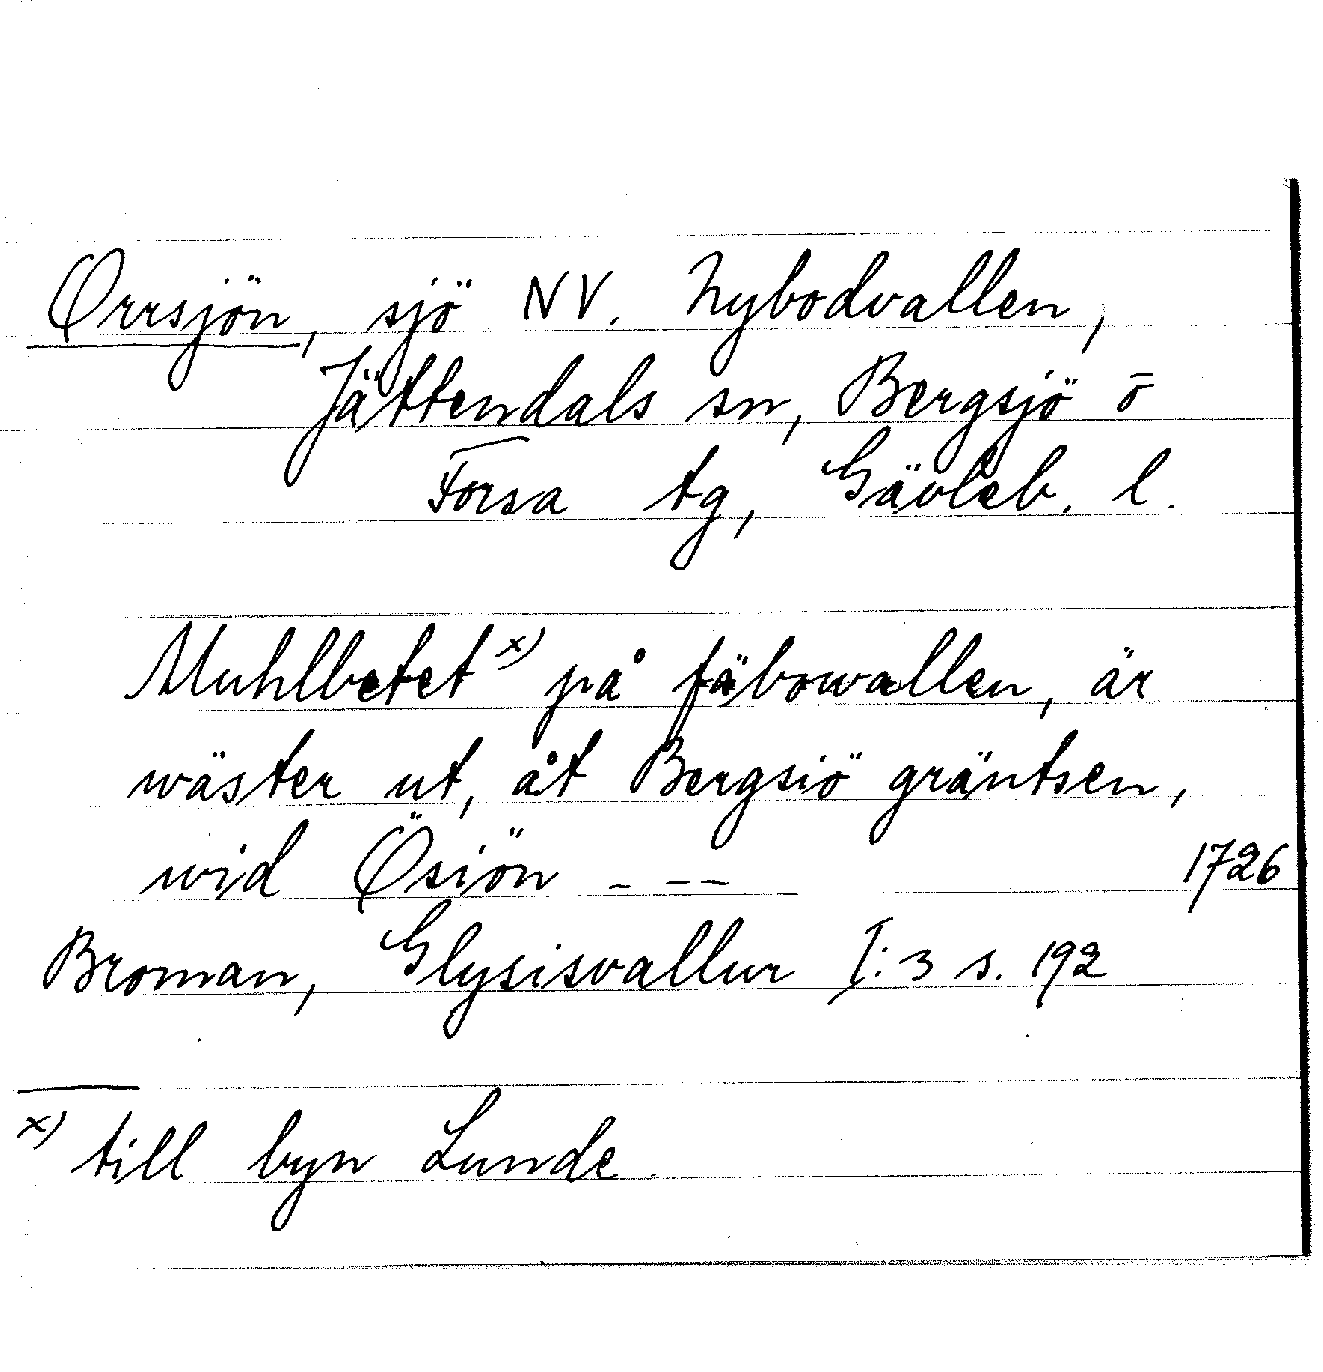 Orrsjön, sjö NV. Nybodvallen,
Jättendals sn, Bergsjö o
Forsa tg, Gävleb. l.
Muhlbetet x) på fäbowallen, är
wäster ut, åt Bergsiö gräntsen,
wid Ösiön - - -
1726
Broman, Glysisvallur I:3 s. 192
x) till byn Lunde.